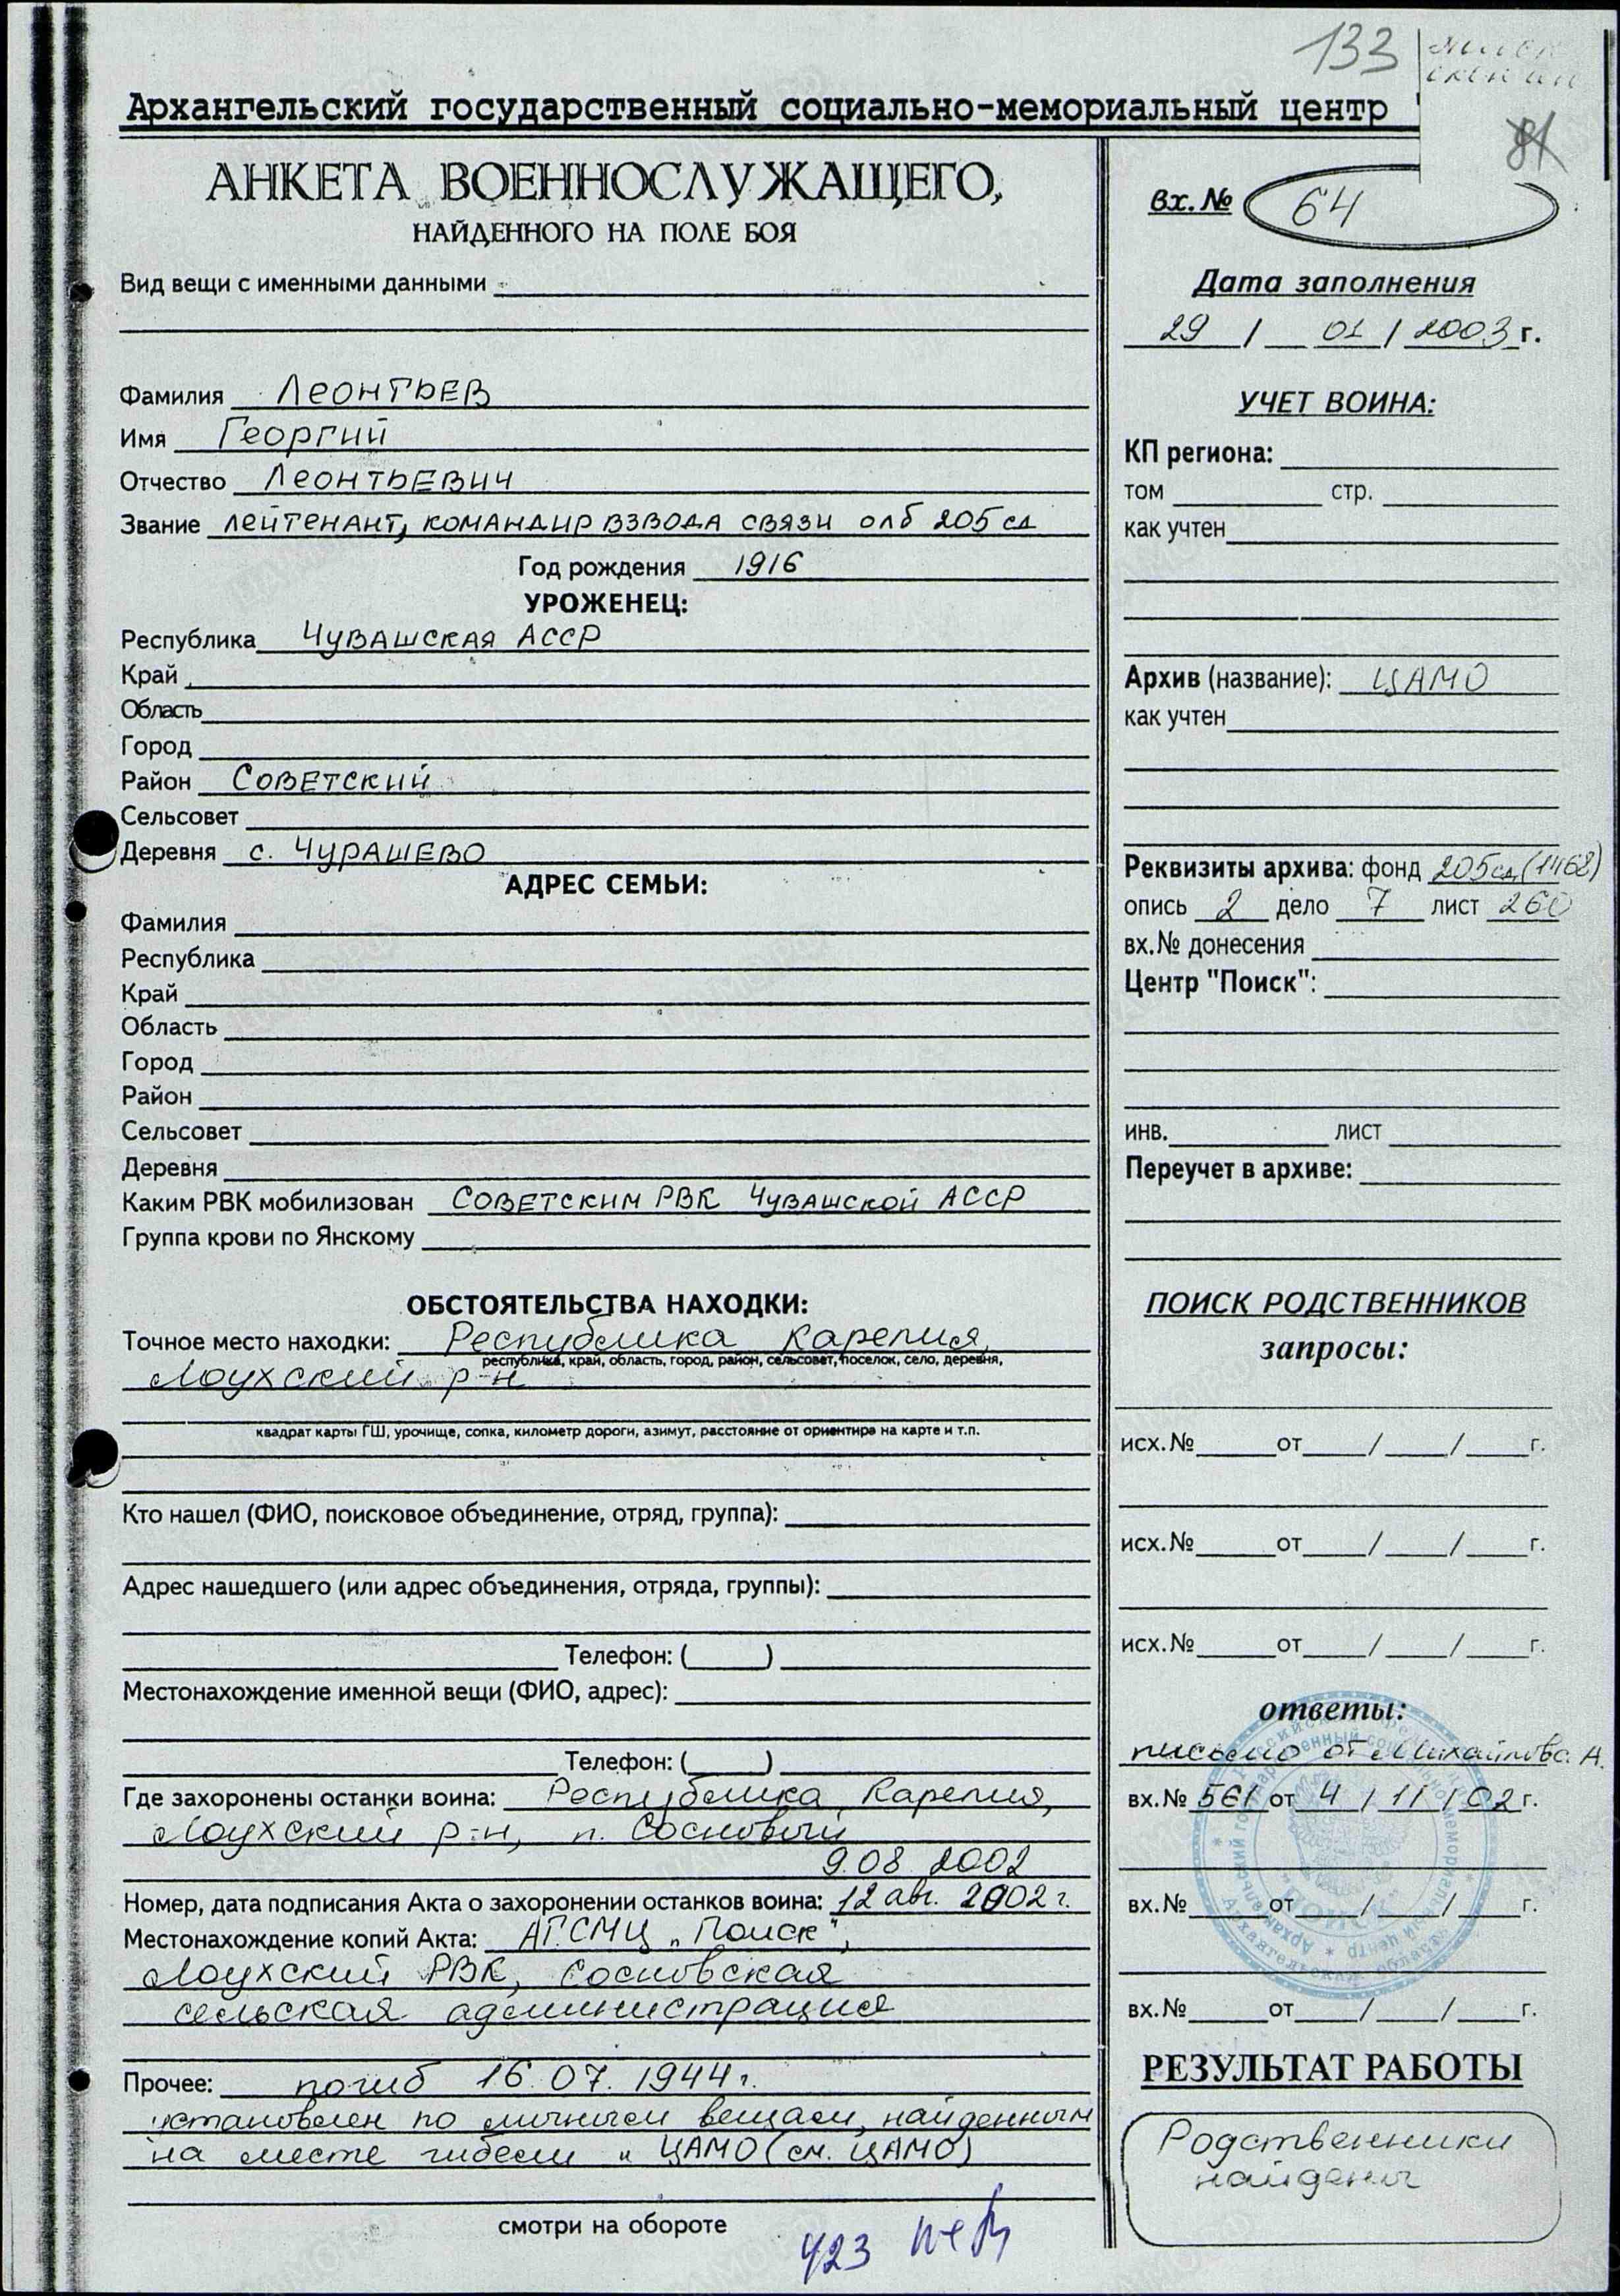 133
81
Архангельский государственный социально-мемориальный центр
АНКЕТА ВОЕННОСЛУЖАЩЕГО,
НАЙДЕННОГО НА ПОЛЕ БОЯ
Вид вещи с именными данными
Фамилия Леонтьев
Имя Георгий
Отчество Леонтьевич
Звание лейтенант, командир взвода связи олб 205 сд
Год рождения 1916
УРОЖЕНЕЦ:
Республика Чувашская АССР
Край
Область
Город
Район Советский
Сельсовет
Деревня с. Чурашево
АДРЕС СЕМЬИ:
Фамилия
Республика
Край
Область
Город
Район
Сельсовет
Деревня
Каким РВК мобилизован Советским РВК Чувашской АССР
Группа крови по Янскому
ОБСТОЯТЕЛЬСТВА НАХОДКИ:
Точное место находки: Республика Карелия,
республика, край, область, город, район, сельсовет, поселок, село, деревня,
Лоухский р-н
квадрат карты ГШ, урочище, сопка, километр дороги, азимут, расстояние от ориентира на карте и т.п.
Кто нашел (ФИО, поисковое объединение, отряд, группа):
Адрес нашедшего (или адрес объединения, отряда, группы):
Телефон: ( )
Местонахождение именной вещи (ФИО, адрес):
Телефон: ( )
Где захоронены останки воина: Республика Карелия,
Лоухский р-н, п. Сосновый
9.08 2002
Номер, дата подписания Акта о захоронении останков воина: 12 авг. 2002 г.
Местонахождение копий Акта: АГСМЦ "Поиск",
Лоухский РВК, Сосновская
сельская администрация
Прочее: погиб 16.07.1944 г.
установлен по личным вещам, найденным
на месте гибели и ЦАМО (см. ЦАМО)
смотри на обороте
423
вх.№ 64
Дата заполнения
29 / 01 / 2003 г.
УЧЕТ ВОИНА:
КП региона:
том стр.
как учтен
Архив (название): ЦАМО
как учтен
Реквизиты архива: фонд 205 сд (1468)
опись 2 дело 7 лист 260
вх.№ донесения
Центр "Поиск":
инв. лист
Переучет в архиве:
ПОИСК РОДСТВЕННИКОВ
запросы:
исх.№ от / / г.
исх.№ от / / г.
исх.№ от / / г.
ответы:
письмо от Михайлова А.
вх.№ 561 от 4 / 11 / 02 г.
вх.№ от / / г.
вх.№ от / / г.
РЕЗУЛЬТАТ РАБОТЫ
Родственники
найдены